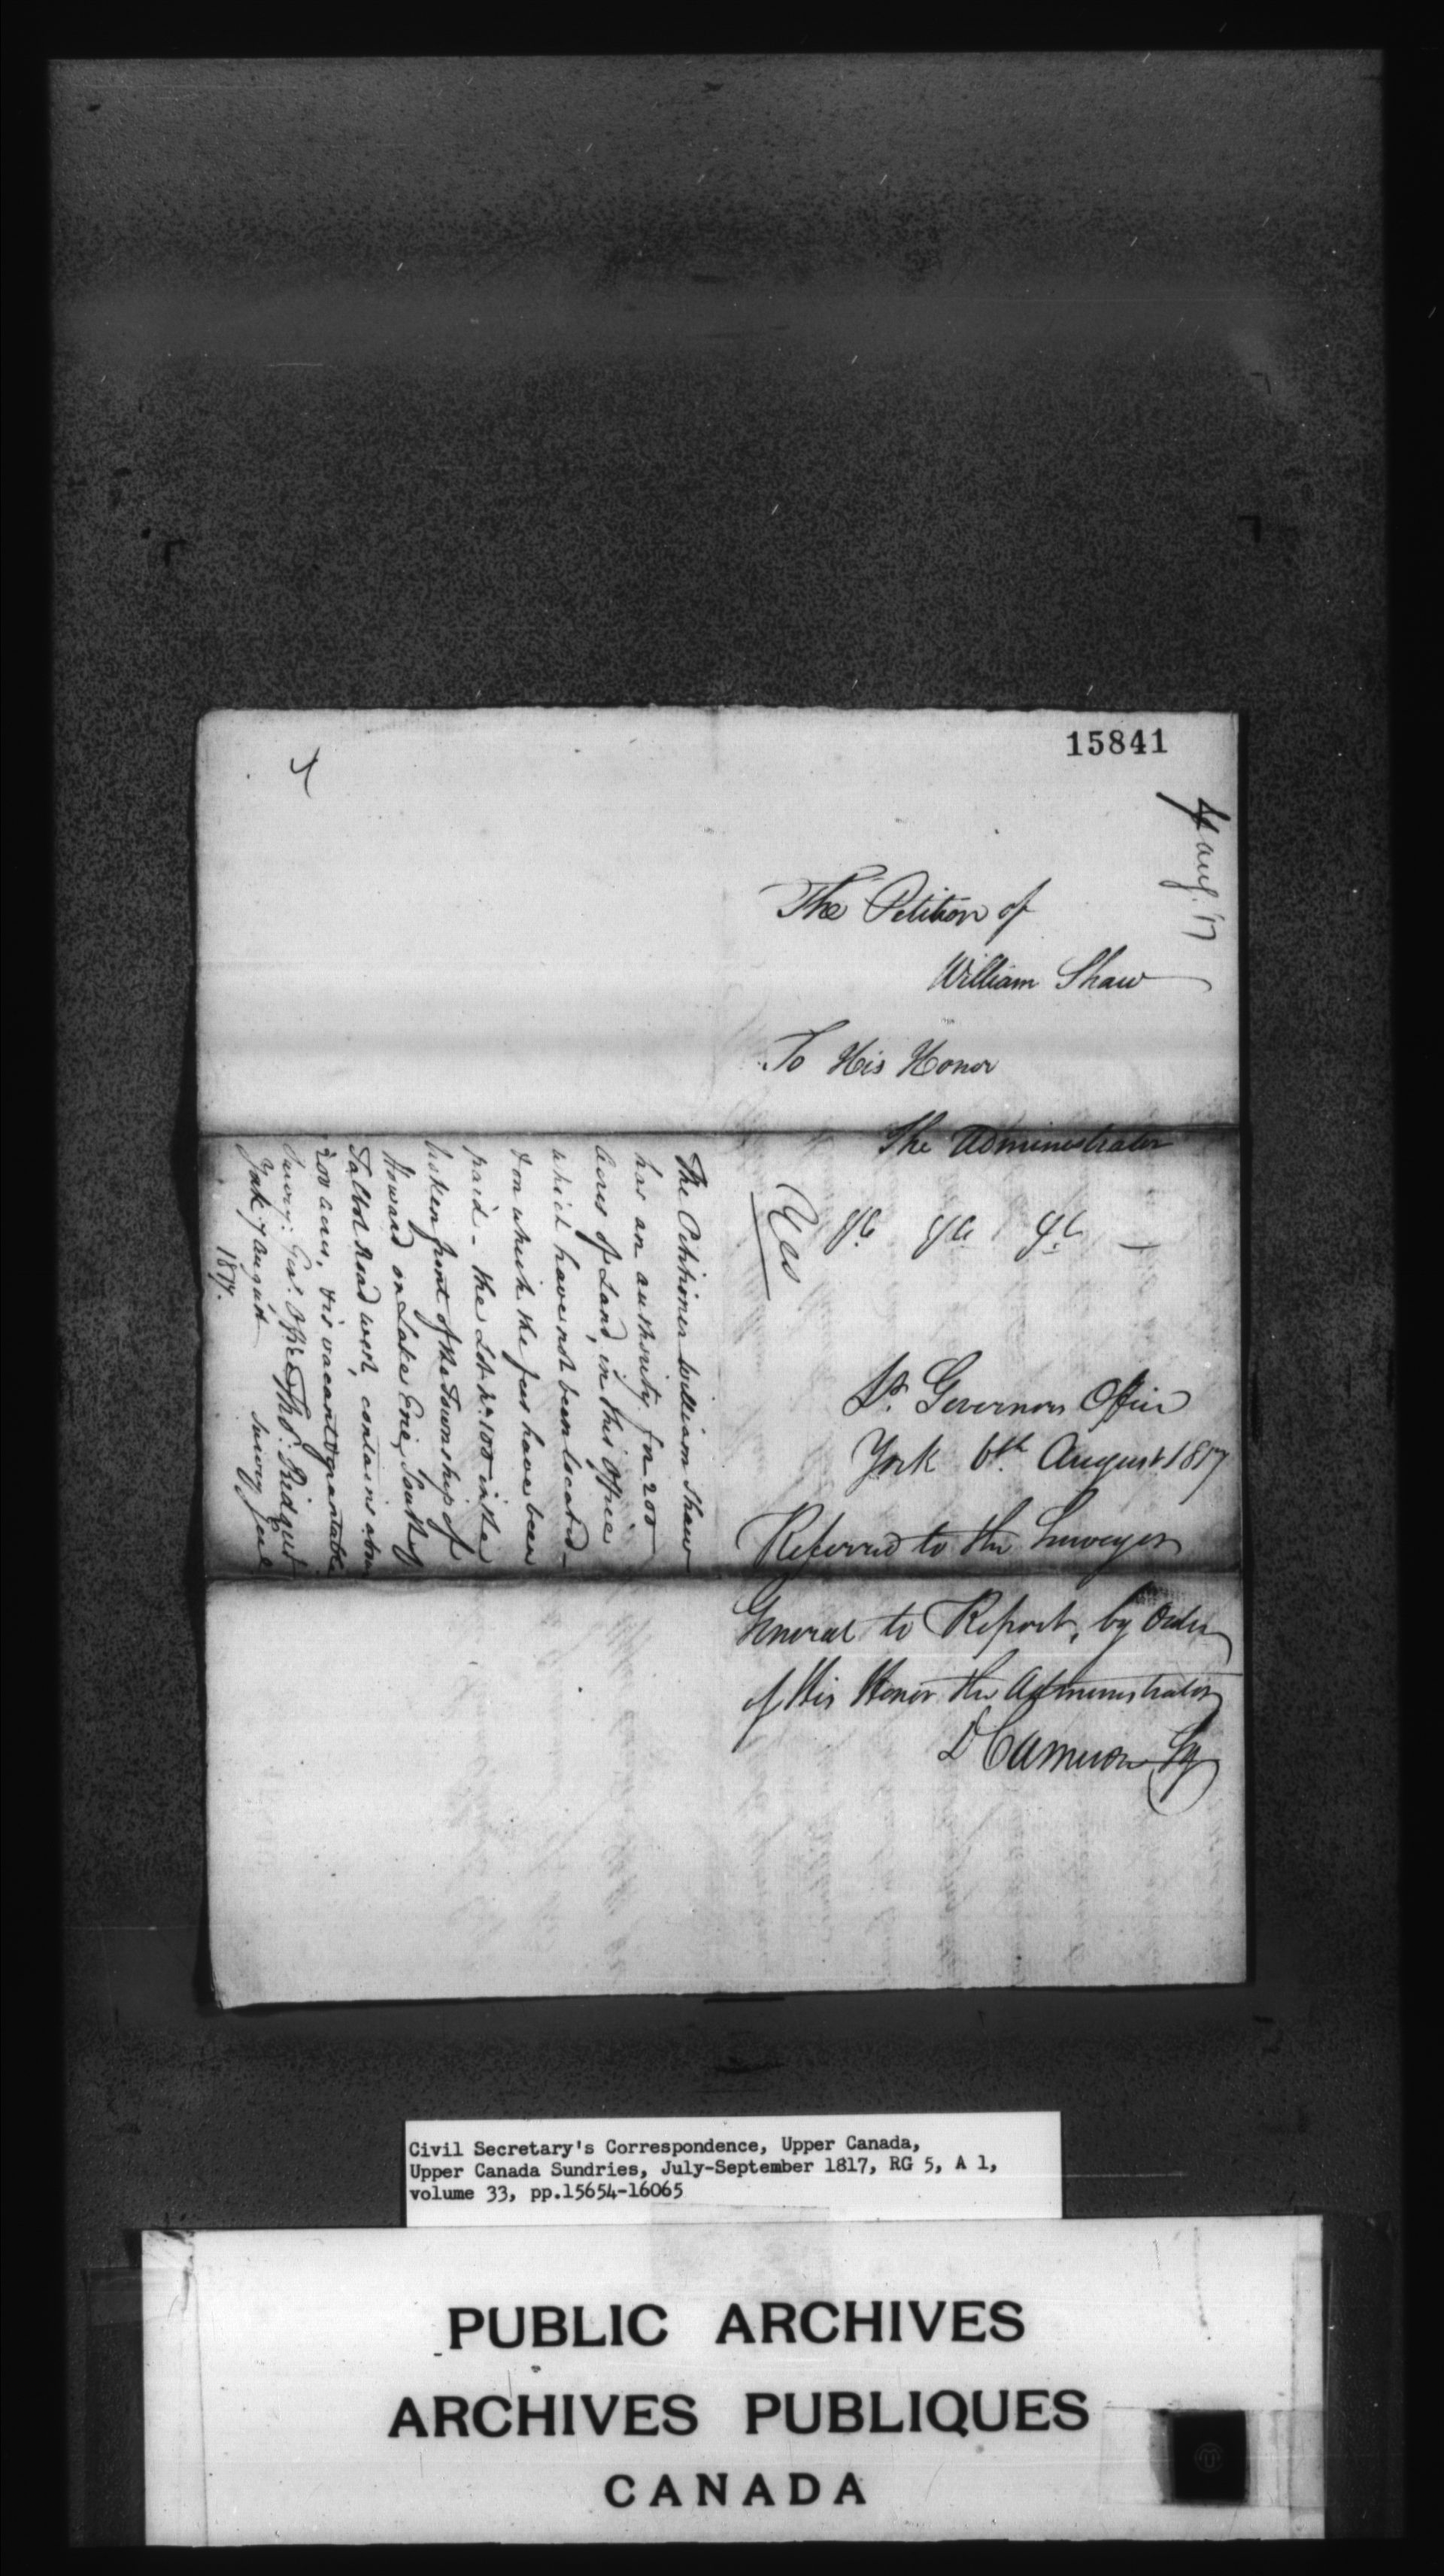 15841
4 aug. '17
The Petition of
William Shaw
To His Honor
The Administrator
&c &c &c
Yes
Lt. Governors Office
York 6th. August 1817
Referred to the Surveyor
General to Report, by Order
of His Honor the Administrator
D Cameron Sy
The Petitioner William Shaw
has an authority for 200
Acres of Land, in this Office
which have not been located -
& on which the fees have been
paid - The Lot No. 100 in the
broken front of the Township of
Howard on Lake Erie, South of
Talbot Road west, contains abou
200 acres, & is vacant & grantable
Survey: Genl. Office Thos. Ridout
York 7 August Survey Genl
1817.
Civil Secretary's Correspondence, Upper Canada,
Upper Canada Sundries, July-September 1817, RG 5, A 1,
volume 33, pp.15654-16065
PUBLIC ARCHIVES
ARCHIVES PUBLIQUES
CANADA